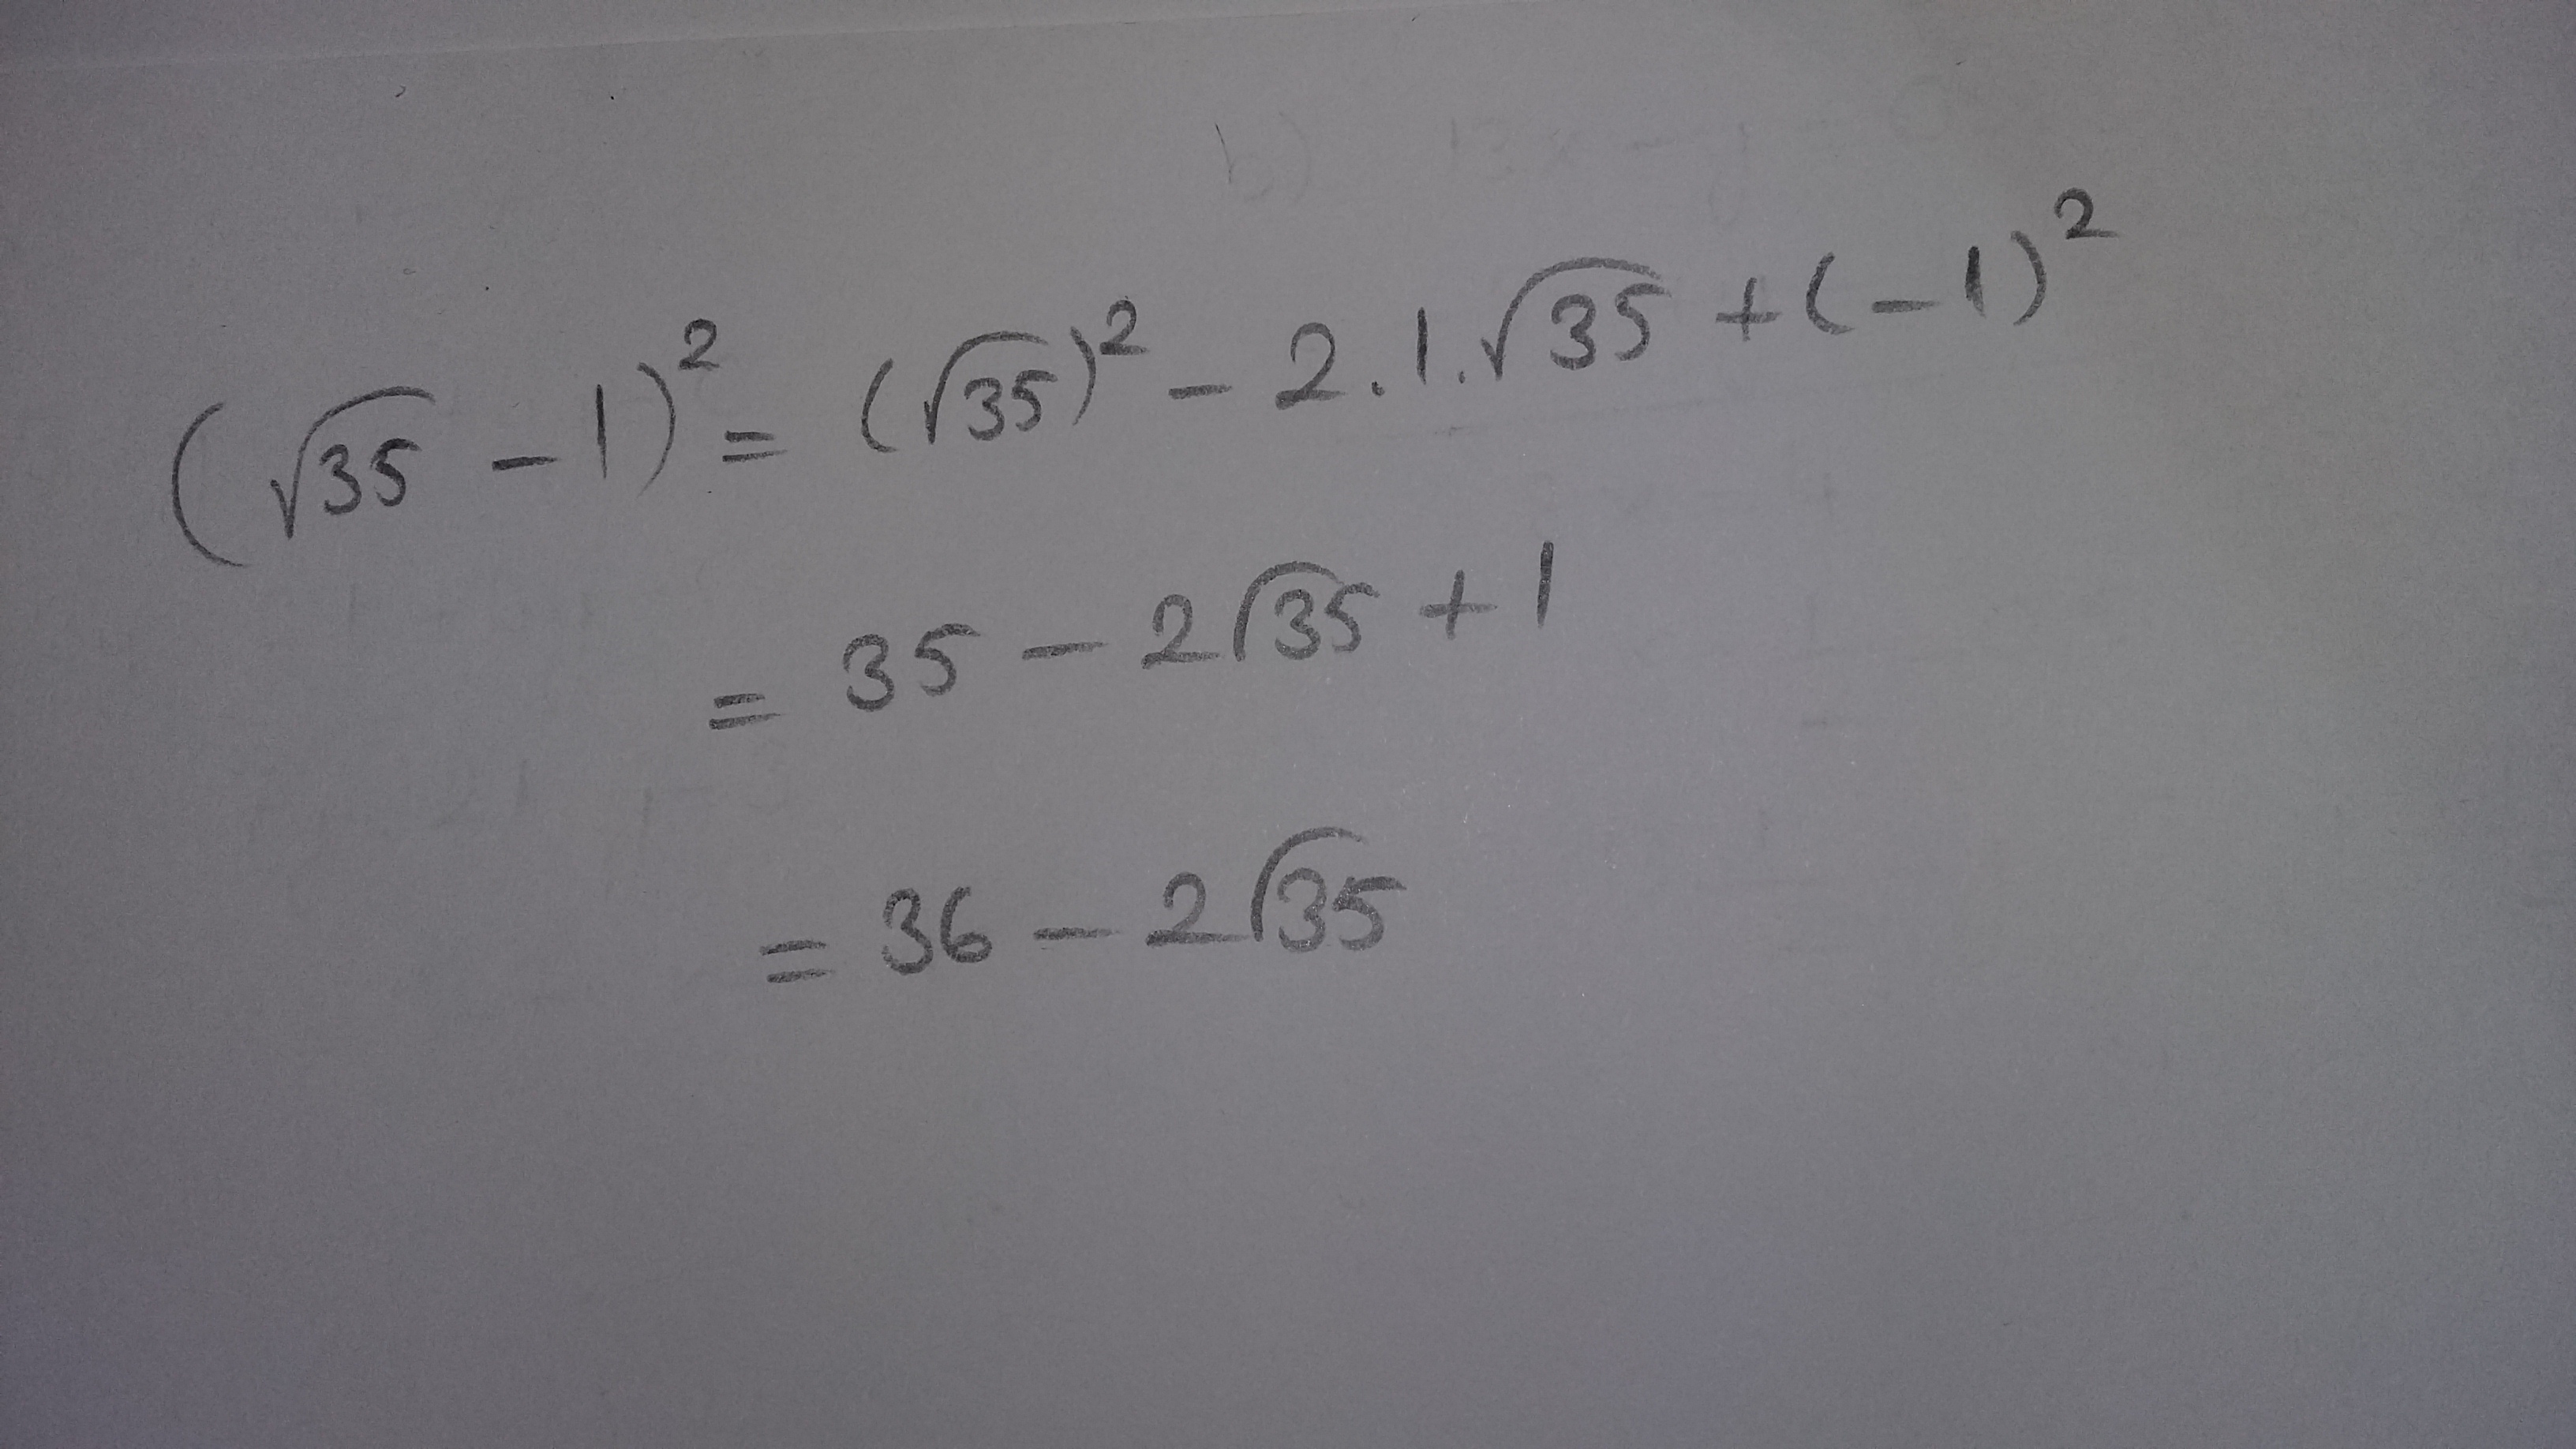 (√35 - 1)² = (√35)² - 2.1.√35 + (-1)²
= 35 - 2√35 + 1
= 36 - 2√35